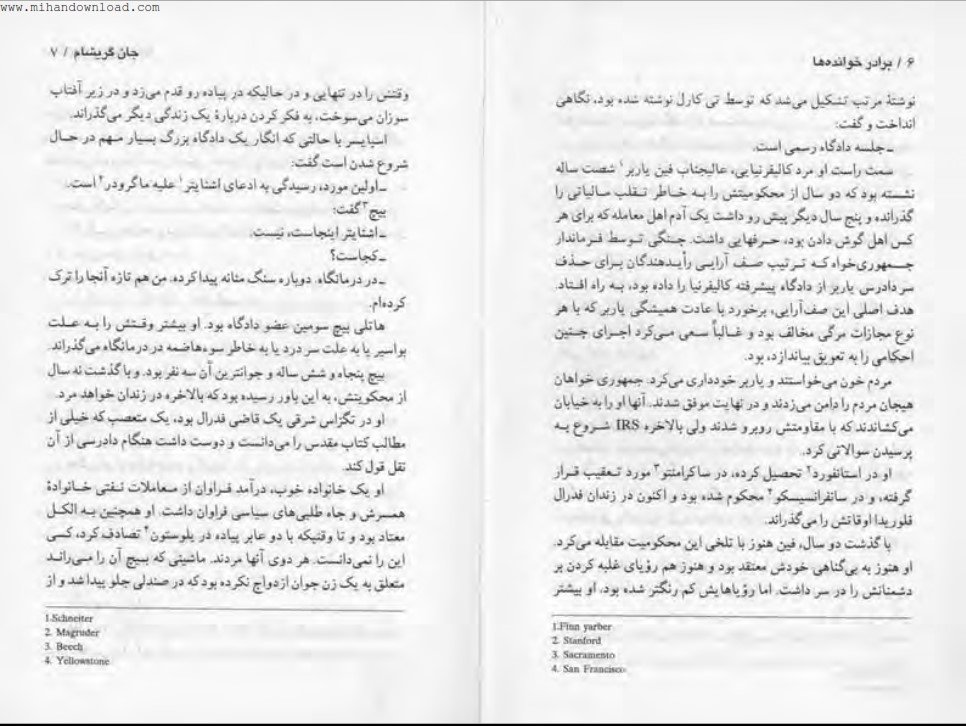 www.mihandownload.com
۶ / برادر خوانده‌ها
نوشتهٔ مرتب تشکیل می‌شد که توسط تی کارل نوشته شده بود، نگاهی
انداخت و گفت:
ـ جلسه دادگاه رسمی است.
سمت راست او مرد کالیفرنیایی، عالیجناب فین یاربر۱ شصت ساله
نشسته بود که دو سال از محکومیتش را به خاطر تقلب مالیاتی را
گذرانده و پنج سال دیگر پیش رو داشت یک آدم اهل معامله که برای هر
کس اهل گوش دادن بود، حرفهایی داشت. جنگی توسط فرماندار
جمهوری‌خواه که ترتیب صف آرایی رأیدهندگان برای حذف
سردادرس یاربر از دادگاه پیشرفته کالیفرنیا را داده بود، به راه افتاد.
هدف اصلی این صف‌آرایی، برخورد با عادت همیشگی یاربر که با هر
نوع مجازات مرگی مخالف بود و غالباً سعی می‌کرد اجرای چنین
احکامی را به تعویق بیاندازد، بود.
مردم خون می‌خواستند و یاربر خودداری می‌کرد. جمهوری خواهان
هیجان مردم را دامن می‌زدند و در نهایت موفق شدند. آنها او را به خیابان
می‌کشاندند که با مقاومتش روبرو شدند ولی بالاخره IRS شروع به
پرسیدن سوالاتی کرد.
او در استانفورد۲ تحصیل کرده، در ساکرامنتو۳ مورد تعقیب قرار
گرفته، و در سانفرانسیسکو۴ محکوم شده بود و اکنون در زندان فدرال
فلوریدا اوقاتش را می‌گذراند.
با گذشت دو سال، فین هنوز با تلخی این محکومیت مقابله می‌کرد.
او هنوز به بی‌گناهی خودش معتقد بود و هنوز هم رؤیای غلبه کردن بر
دشمنانش را در سر داشت. اما رؤیاهایش کم رنگتر شده بود. او بیشتر
1.Finn yarber
2. Stanford
3. Sacramento
4. San Francisco
جان گریشام / ۷
وقتش را در تنهایی و در حالیکه در پیاده رو قدم می‌زد و در زیر آفتاب
سوزان می‌سوخت، به فکر کردن دربارهٔ یک زندگی دیگر می‌گذراند.
اسپایسر با حالتی که انگار یک دادگاه بزرگ بسیار مهم در حال
شروع شدن است گفت:
ـ اولین مورد، رسیدگی به ادعای اشنایتر۱ علیه ماگرودر۲ است.
بیچ۳ گفت:
ـ اشنایتر اینجاست، نیست.
ـ کجاست؟
ـ در درمانگاه. دوباره سنگ مثانه پیدا کرده. من هم تازه آنجا را ترک
کرده‌ام.
هاتلی بیچ سومین عضو دادگاه بود. او بیشتر وقتش را به علت
بواسیر یا به علت سر درد یا به خاطر سوءهاضمه در درمانگاه می‌گذراند.
بیچ پنجاه و شش ساله و جوانترین آن سه نفر بود. و با گذشت نه سال
از محکومیتش، به این باور رسیده بود که بالاخره در زندان خواهد مرد.
او در تگزاس شرقی یک قاضی فدرال بود، یک متعصب که خیلی از
مطالب کتاب مقدس را می‌دانست و دوست داشت هنگام دادرسی از آن
نقل قول کند.
او یک خانواده خوب، درآمد فراوان از معاملات نفتی خانوادهٔ
همسرش و جاه طلبی‌های سیاسی فراوان داشت. او همچنین به الکل
معتاد بود و تا وقتیکه با دو عابر پیاده در یلوستون۴ تصادف کرد، کسی
این را نمی‌دانست. هر دوی آنها مردند. ماشینی که بیچ آن را می‌راند
متعلق به یک زن جوان ازدواج نکرده بود که در صندلی جلو پیدا شد و از
1.Schneiter
2. Magruder
3. Beech
4. Yellowstone